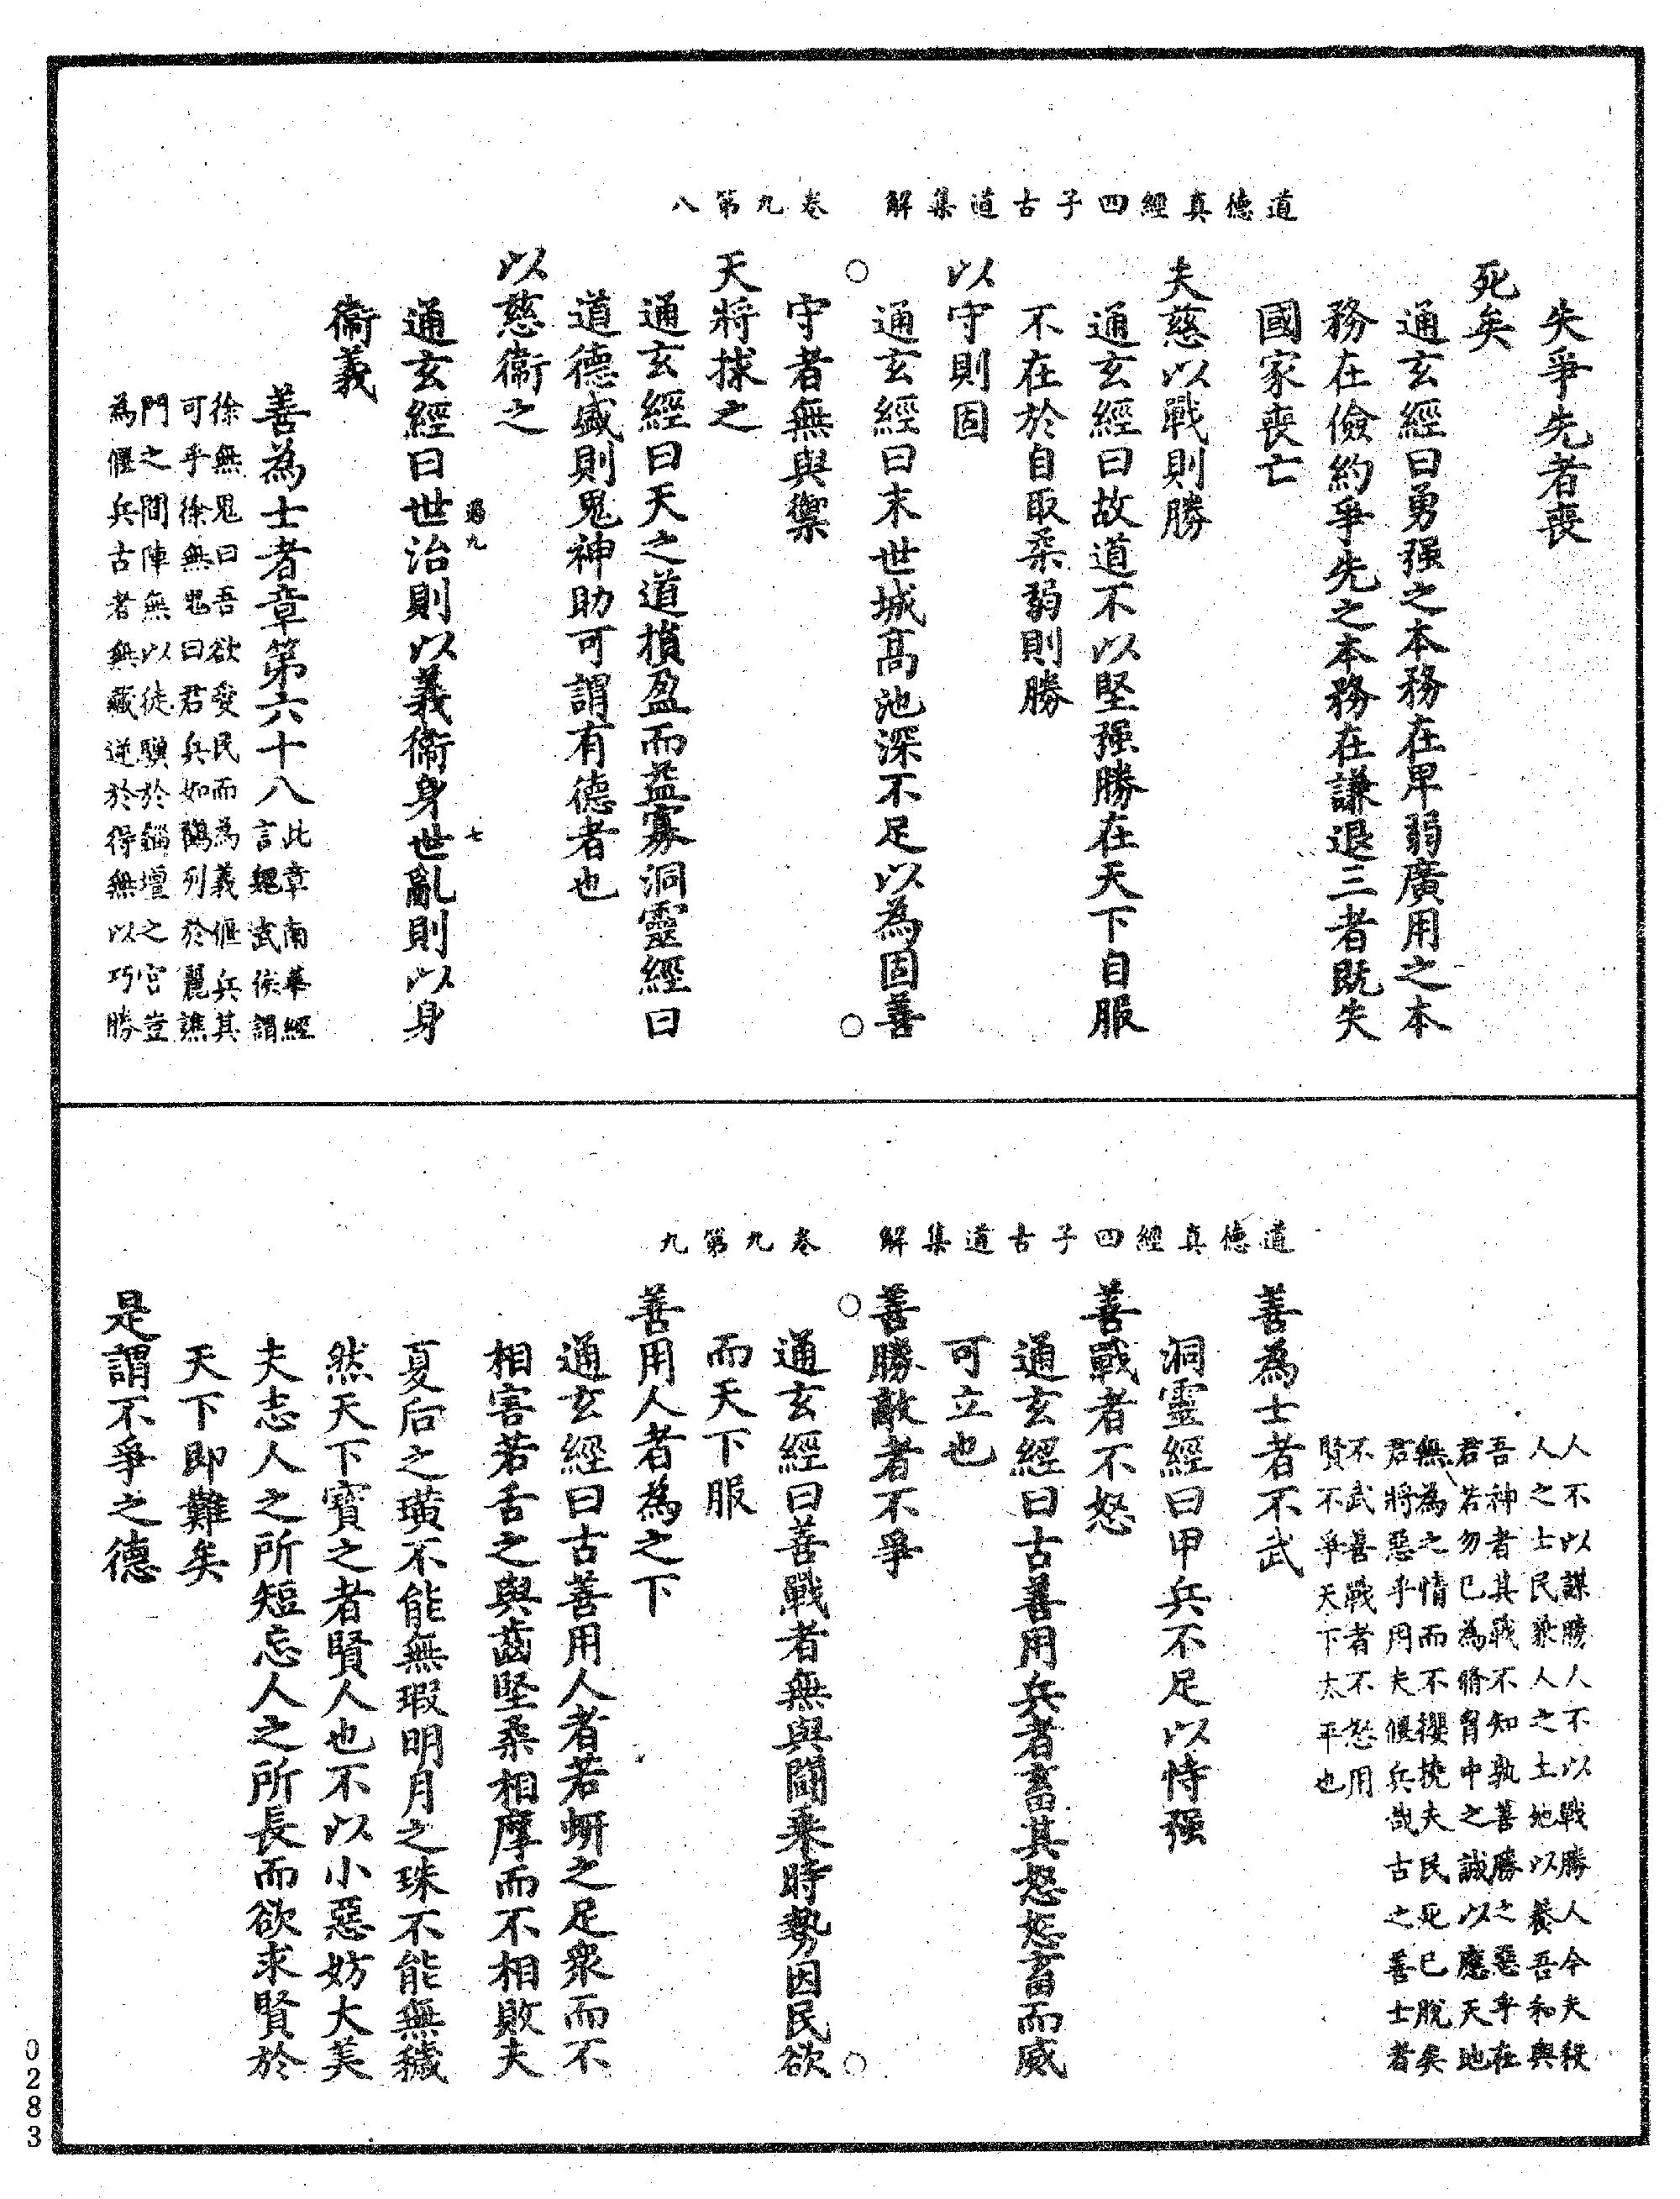 道德真經四子古道集解　卷九第八
失爭先者喪
死矣
通玄經曰勇强之本務在卑弱廣用之本
務在儉約爭先之本務在謙退三者既失
國家喪亡
夫慈以戰則勝
通玄經曰故道不以堅强勝在天下自服
不在於自取柔弱則勝
以守則固
通玄經曰末世城高池深不足以為固善
守者無與禦
天將救之
通玄經曰天之道損盈而益寡洞靈經曰
道德盛則鬼神助可謂有德者也
以慈衞之
通玄經曰世治則以義衞身世亂則以身
衞義
善為士者章第六十八
此章南華經
言魏武侯謂
徐無鬼曰吾欲愛民而為義偃兵其
可乎徐無鬼曰君兵如鶴列於麗譙
門之間陣無以徒驥於錙壇之宫豈
為偃兵古者無藏逆於得無以巧勝
道德真經四子古道集解　卷九第九
人不以謀勝人不以戰勝人今夫殺
人之士民兼人之土地以養吾和與
吾神者其戰不知孰善勝之惡乎在
君若勿已為脩胷中之誠以應天地
無為之情而不攖撓夫民死已脫矣
君將惡乎用夫偃兵哉古之善士者
不武善戰者不怒用
賢不爭天下太平也
善為士者不武
洞靈經曰甲兵不足以恃强
善戰者不怒
通玄經曰古善用兵者畜其怒怒畜而威
可立也
善勝敵者不爭
通玄經曰善戰者無與鬪乘時勢因民欲
而天下服
善用人者為之下
通玄經曰古善用人者若蚈之足衆而不
相害若舌之與齒堅柔相摩而不相敗夫
夏后之璜不能無瑕明月之珠不能無穢
然天下寶之者賢人也不以小惡妨大美
夫志人之所短忘人之所長而欲求賢於
天下即難矣
是謂不爭之德
0283